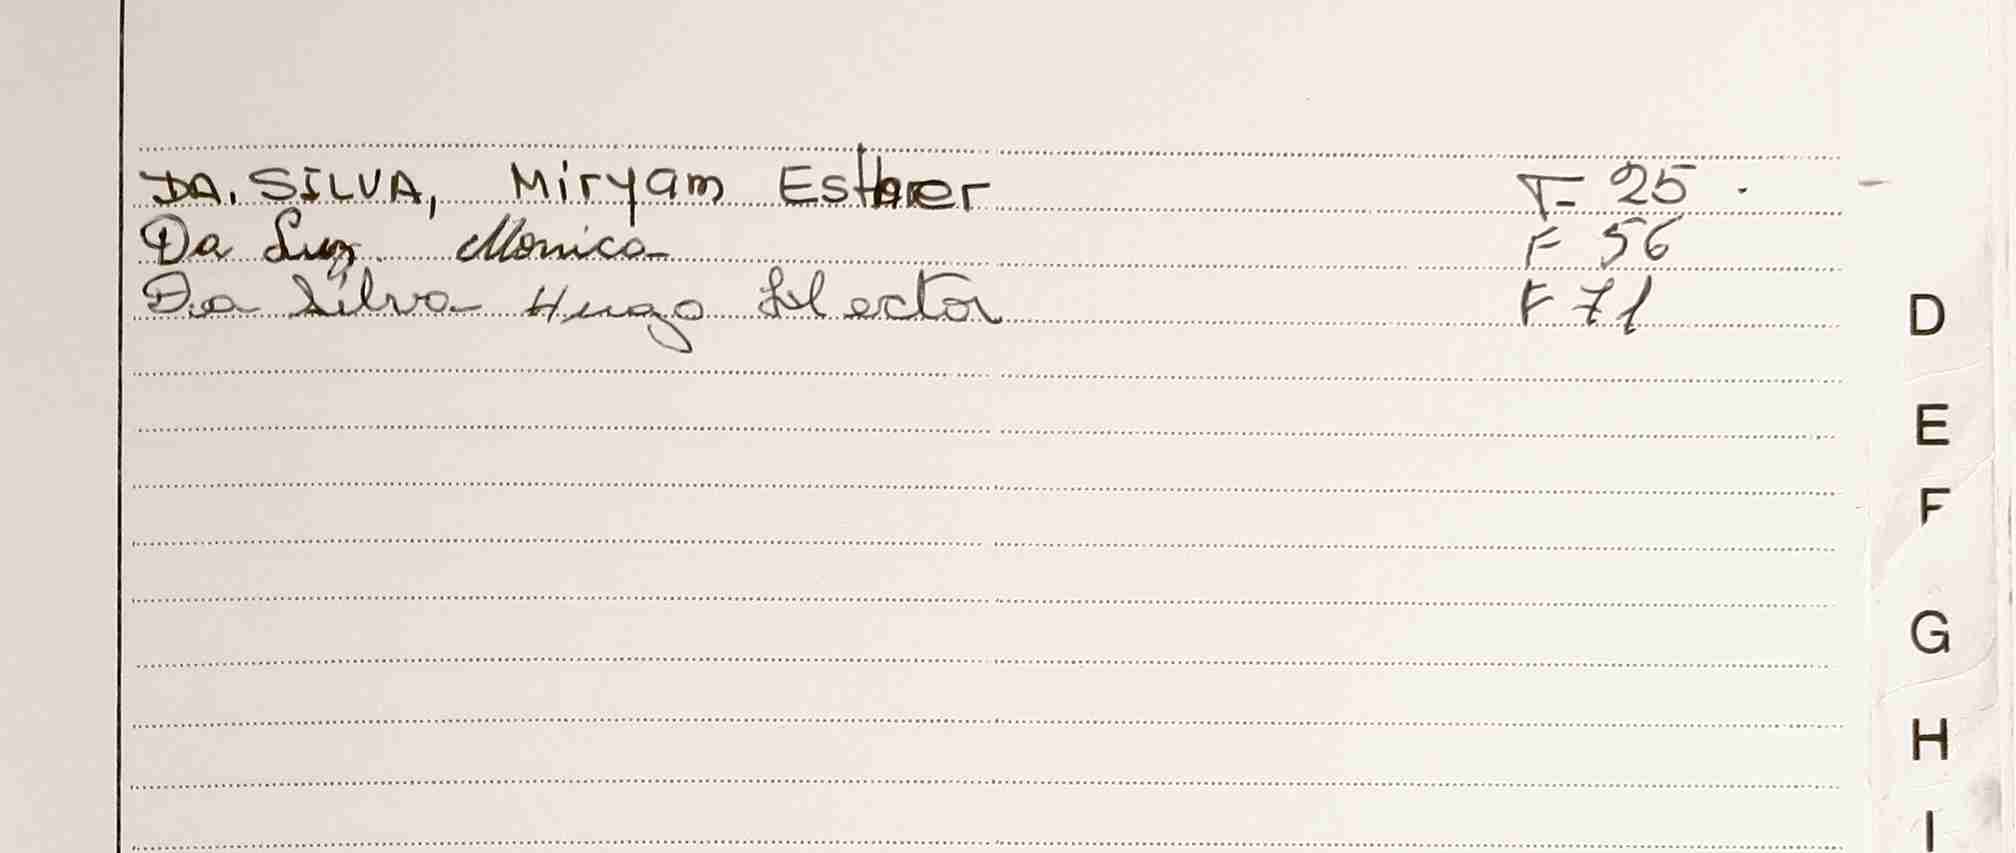 DA. SILVA, Miryam Esther F- 25.
Da Luz Monica F 56
Da Silva Hugo Hector F 71
D
E
F
G
H
I